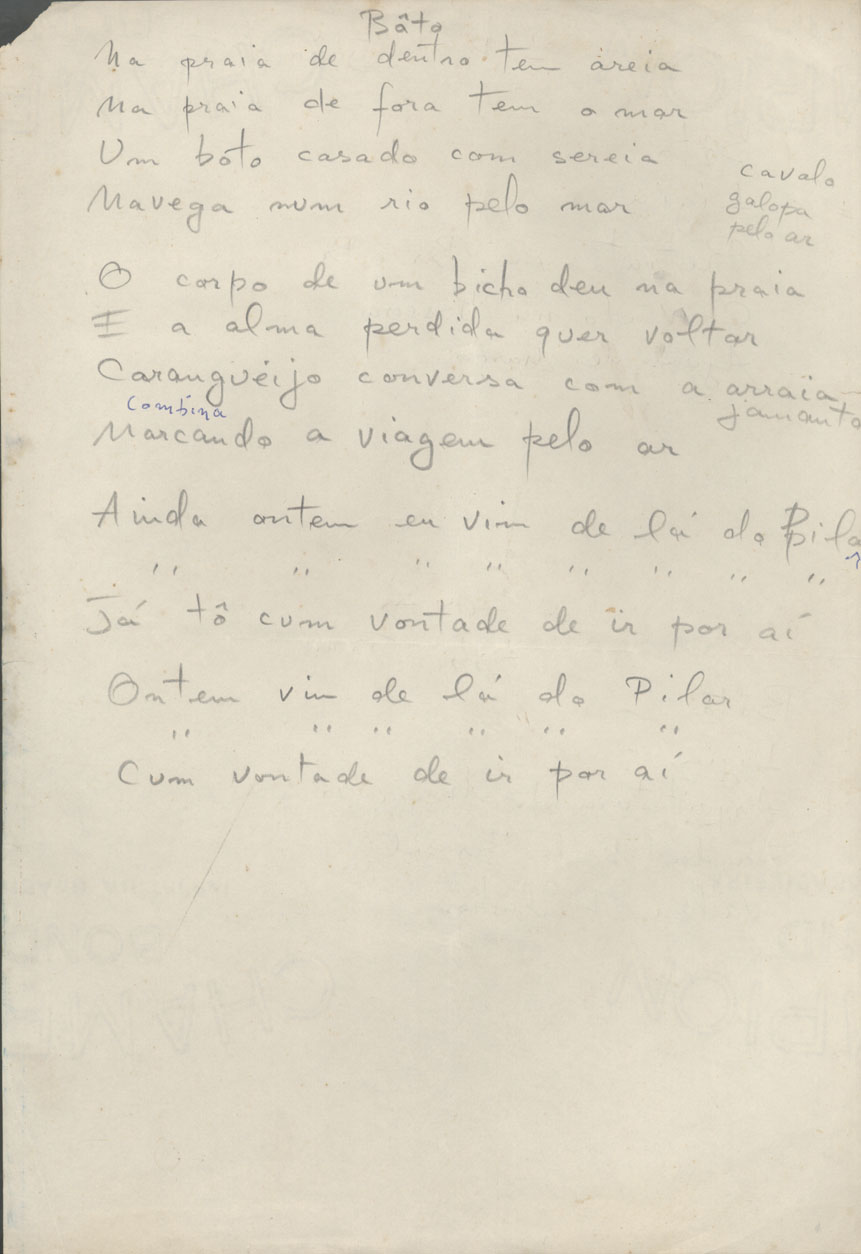 Bôto
Na praia de dentro tem areia
Na praia de fora tem o mar
Um bôto casado com sereia
Navega num rio pelo mar
cavalo
galopa
pelo ar
O corpo de um bicho deu na praia
E a alma perdida quer voltar
Caranguéijo conversa com a arraia
jamanta
combina
Marcando a viagem pelo ar
Ainda ontem eu vim de lá do Pilar
" " " " " " " "
Já tô cum vontade de ir por aí
Ontem vim de lá do Pilar
" " " " " "
Cum vontade de ir por aí